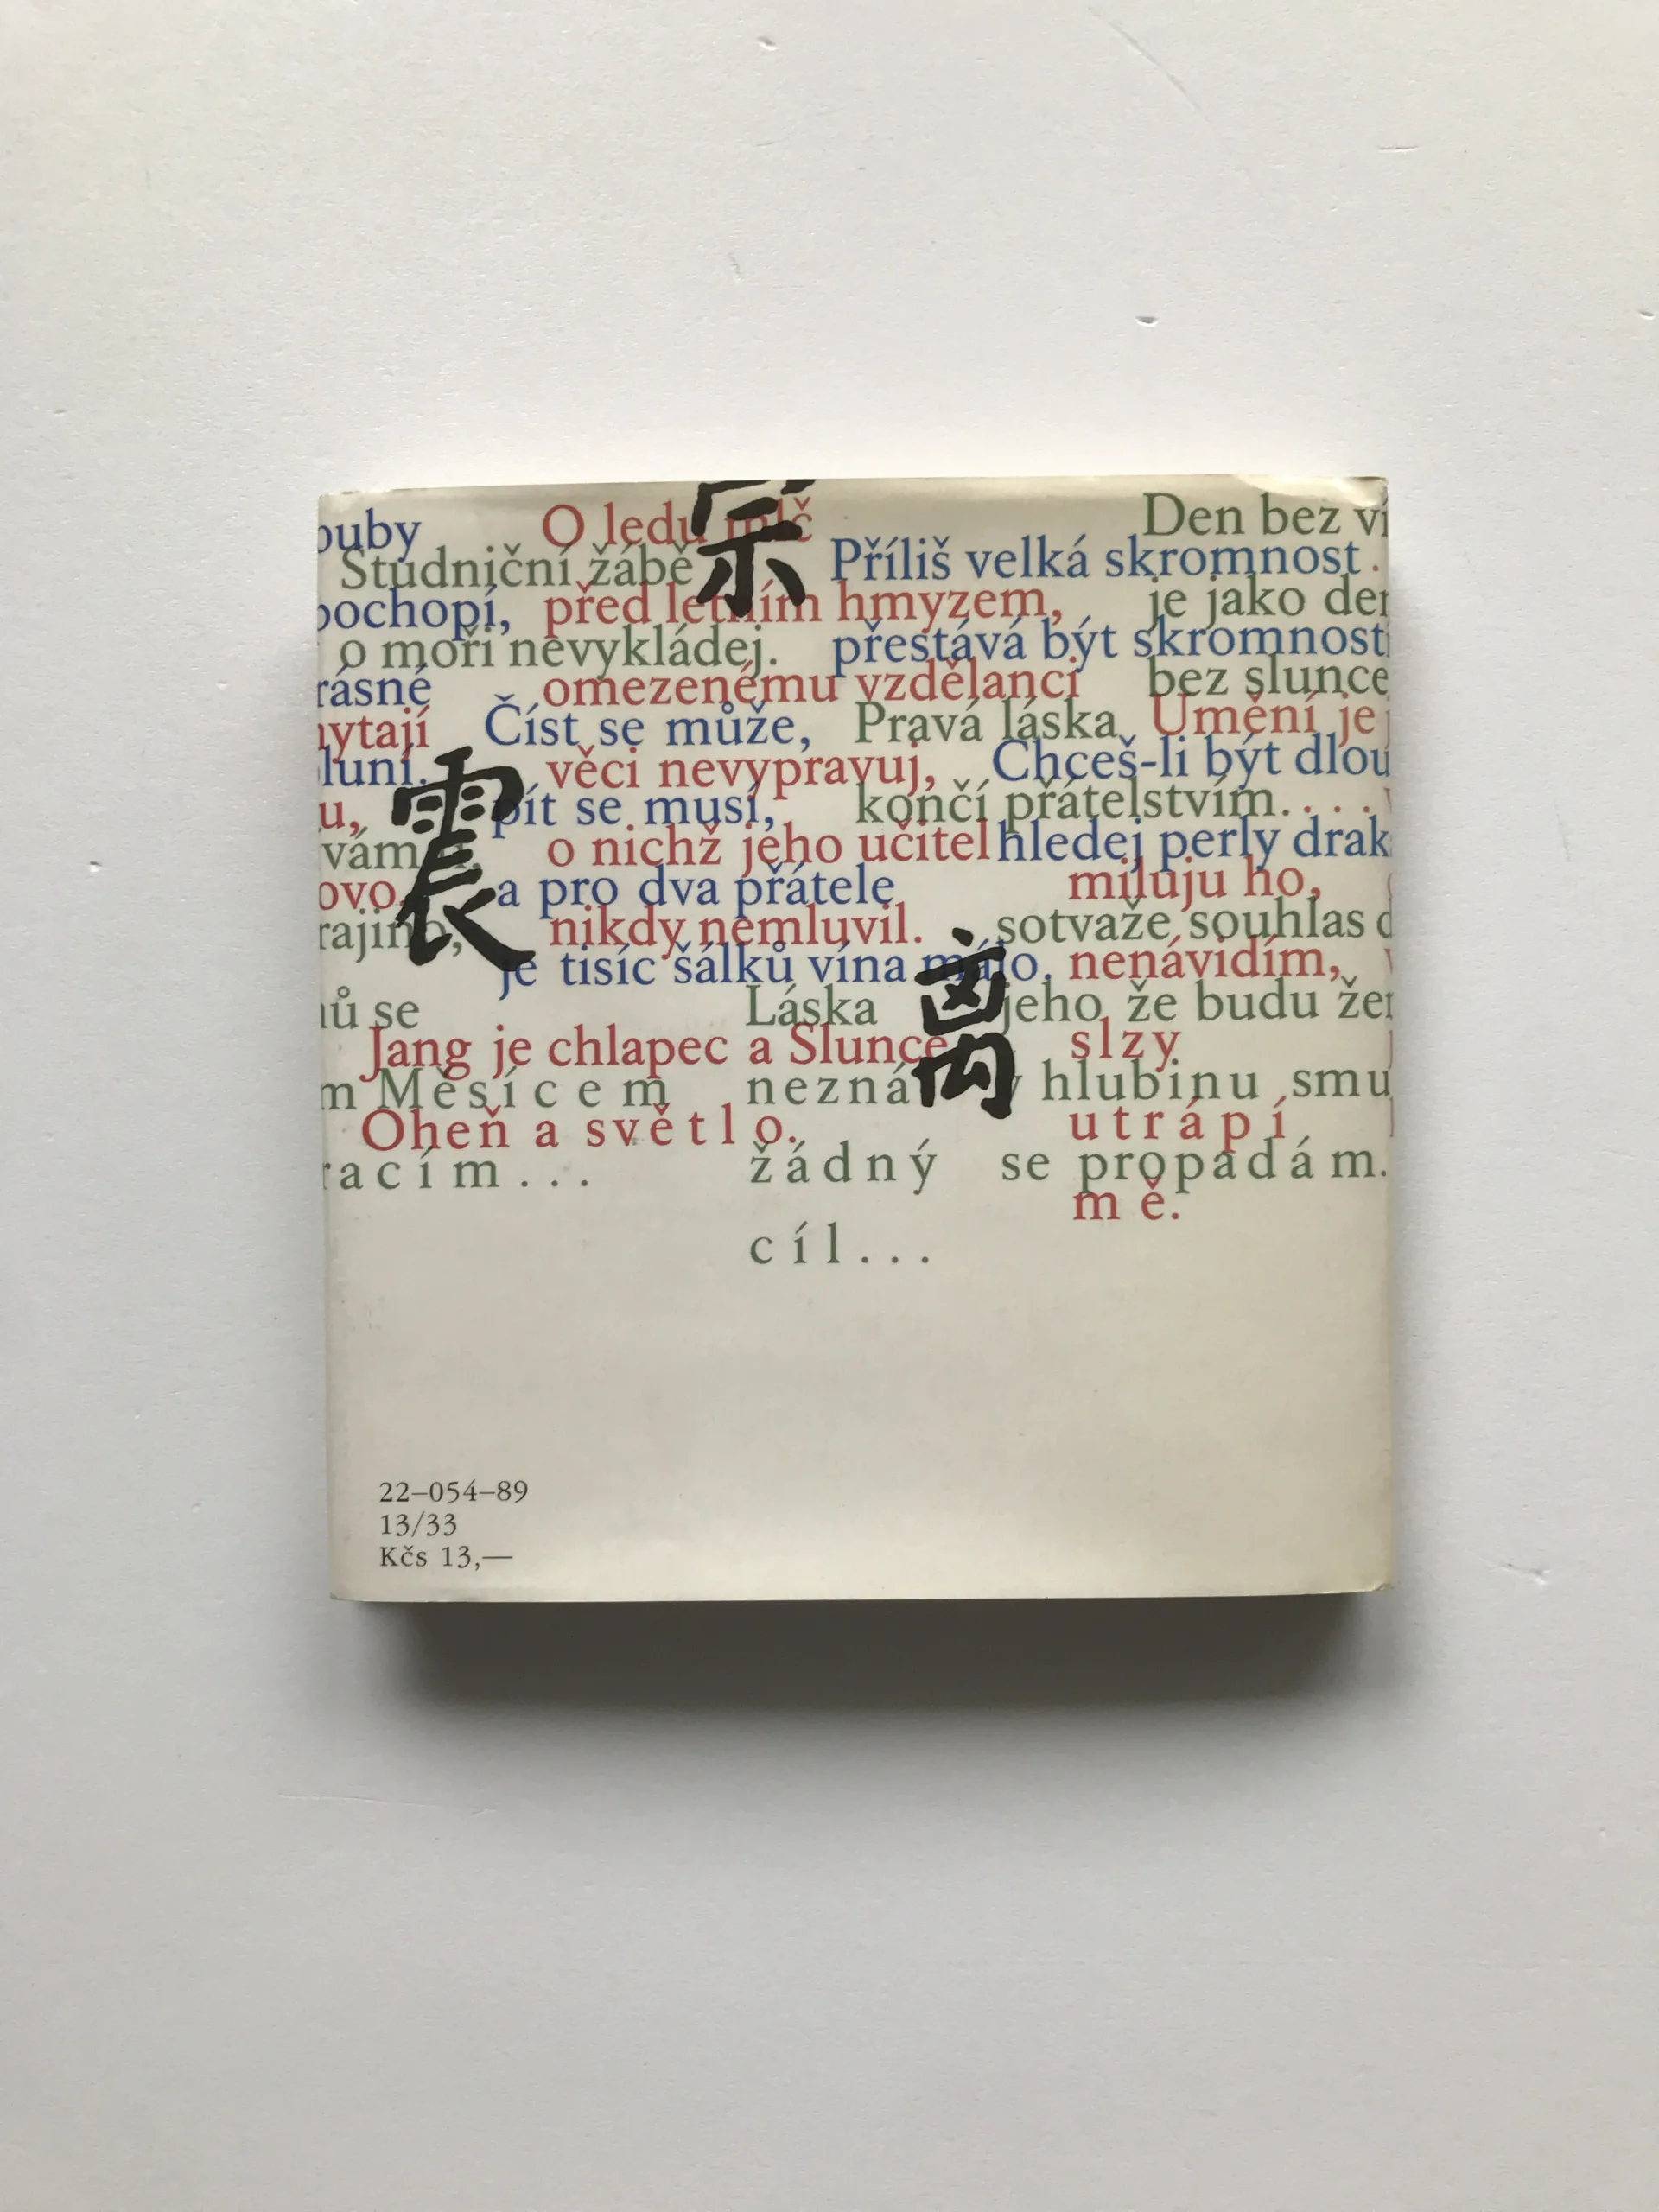 ouby O ledu mlč Den bez vi
Studniční žábě Příliš velká skromnost .
pochopí, před letním hmyzem, je jako der
o moři nevykládej. přestává být skromnost
rásné omezenému vzdělanci bez slunce
hytají Číst se může, Pravá láska Umění je
luní. věci nevypravuj, Chceš-li být dlou
u, pít se musí, končí přátelstvím....
vám o nichž jeho učitel hledej perly drak
ovo. a pro dva přátele miluju ho,
rajino, nikdy nemluvil. sotvaže souhlas
je tisíc šálků vína málo. nenávidím,
ů se Láska jeho že budu žer
Jang je chlapec a Slunce slzy
m Měsícem nezná hlubinu smu
Oheň a světlo. utrápí
racím... žádný se propadám.
mě.
cíl...
宗
震
离
22–054–89
13/33
Kčs 13,—